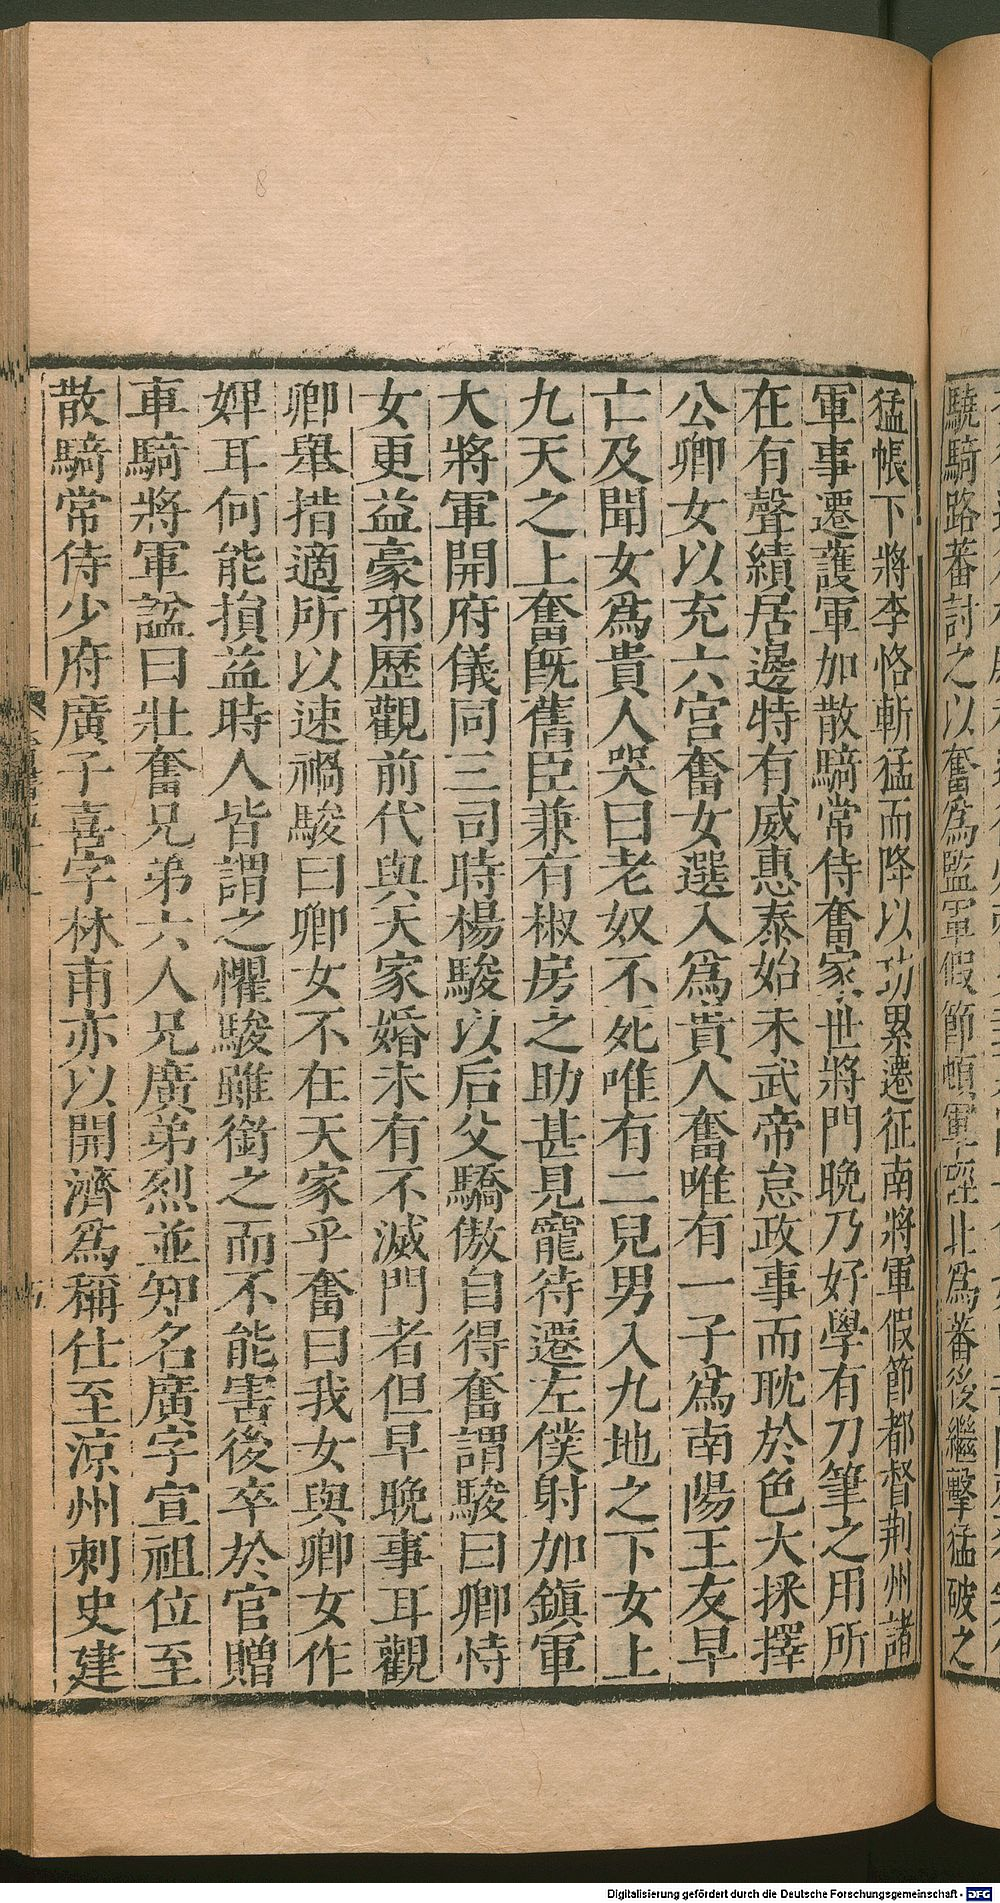 驍騎路蕃討之以奮爲監軍假節頓軍硜北爲蕃後繼擊猛破之
猛帳下將李恪斬猛而降以功累遷征南將軍假節都督荆州諸
軍事遷護軍加散騎常侍奮家世將門晚乃好學有刀筆之用所
在有聲績居邊特有威惠泰始末武帝怠政事而耽於色大採擇
公卿女以充六宮奮女選入爲貴人奮唯有一子爲南陽王友早
亡及聞女爲貴人哭曰老奴不死唯有二兒男入九地之下女上
九天之上奮旣舊臣兼有椒房之助甚見寵待遷左僕射加鎭軍
大將軍開府儀同三司時楊駿以后父驕傲自得奮謂駿曰卿恃
女更益豪邪歷觀前代與天家婚未有不滅門者但早晚事耳觀
卿舉措適所以速禍駿曰卿女不在天家乎奮曰我女與卿女作
婢耳何能損益時人皆謂之懼駿雖銜之而不能害後卒於官贈
車騎將軍諡曰壯奮兄弟六人兄廣弟烈並知名廣字宣祖位至
散騎常侍少府廣子喜字林甫亦以開濟爲稱仕至涼州刺史建
8
Digitalisierung gefördert durch die Deutsche Forschungsgemeinschaft - DFG